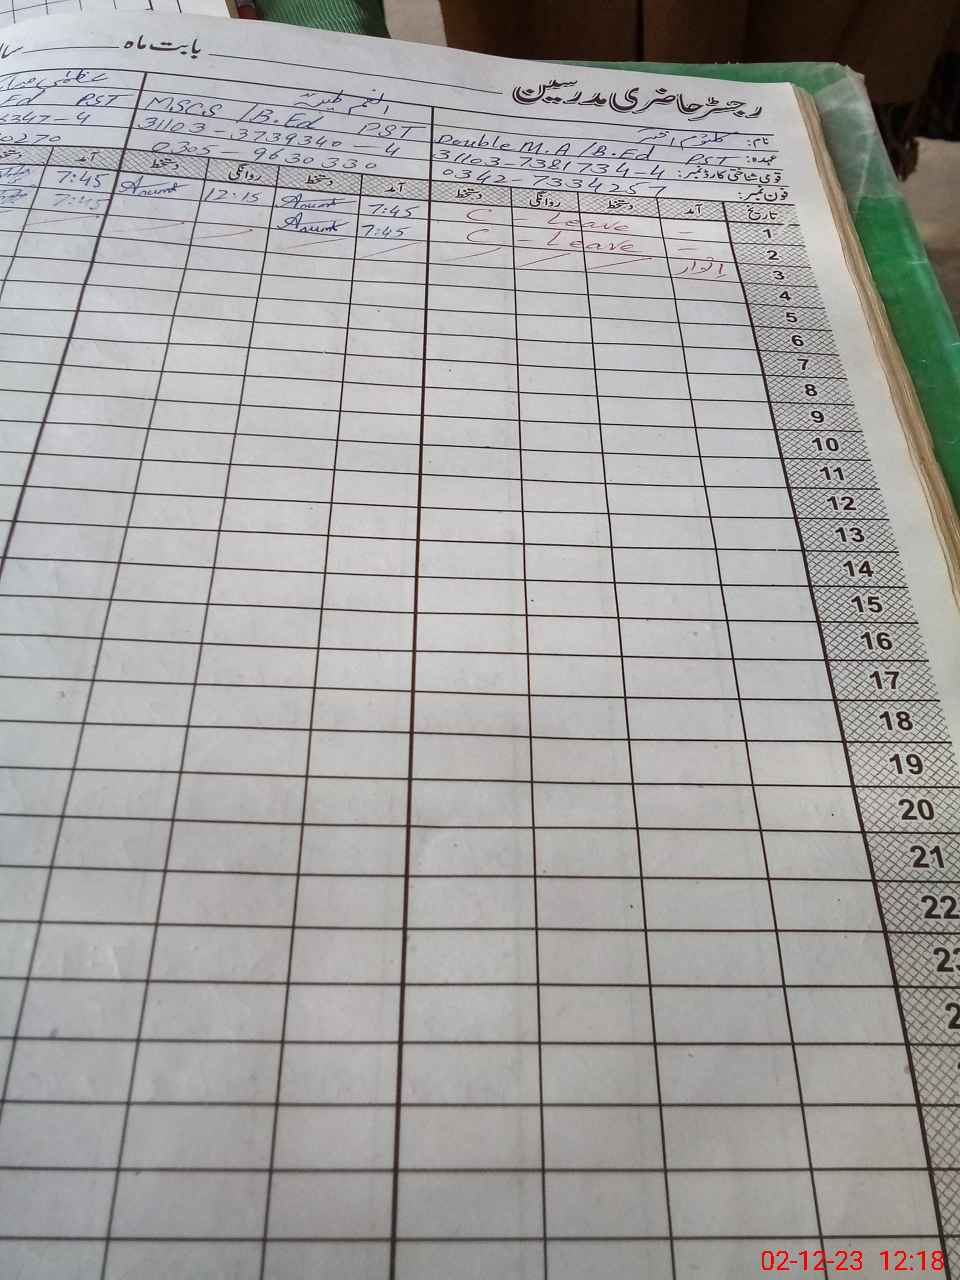 رجسٹر حاضری مدرسین
بابت ماہ
نام:
عہدہ: Double M.A / B.Ed PST
قومی شناختی کارڈ نمبر: 31103-7381734-4
فون نمبر: 0342-7334257
M.SCS / B.Ed PST
31103-3739340-4
0305-9630330
Ed PST
6347-4
0270
تاریخ آمد دستخط روانگی دستخط آمد دستخط روانگی دستخط آمد
1 - C - Leave 7:45 12:15 7:45
2 - C - Leave 7:45 7:45
3 اتوار
4
5
6
7
8
9
10
11
12
13
14
15
16
17
18
19
20
21
22
23
02-12-23 12:18